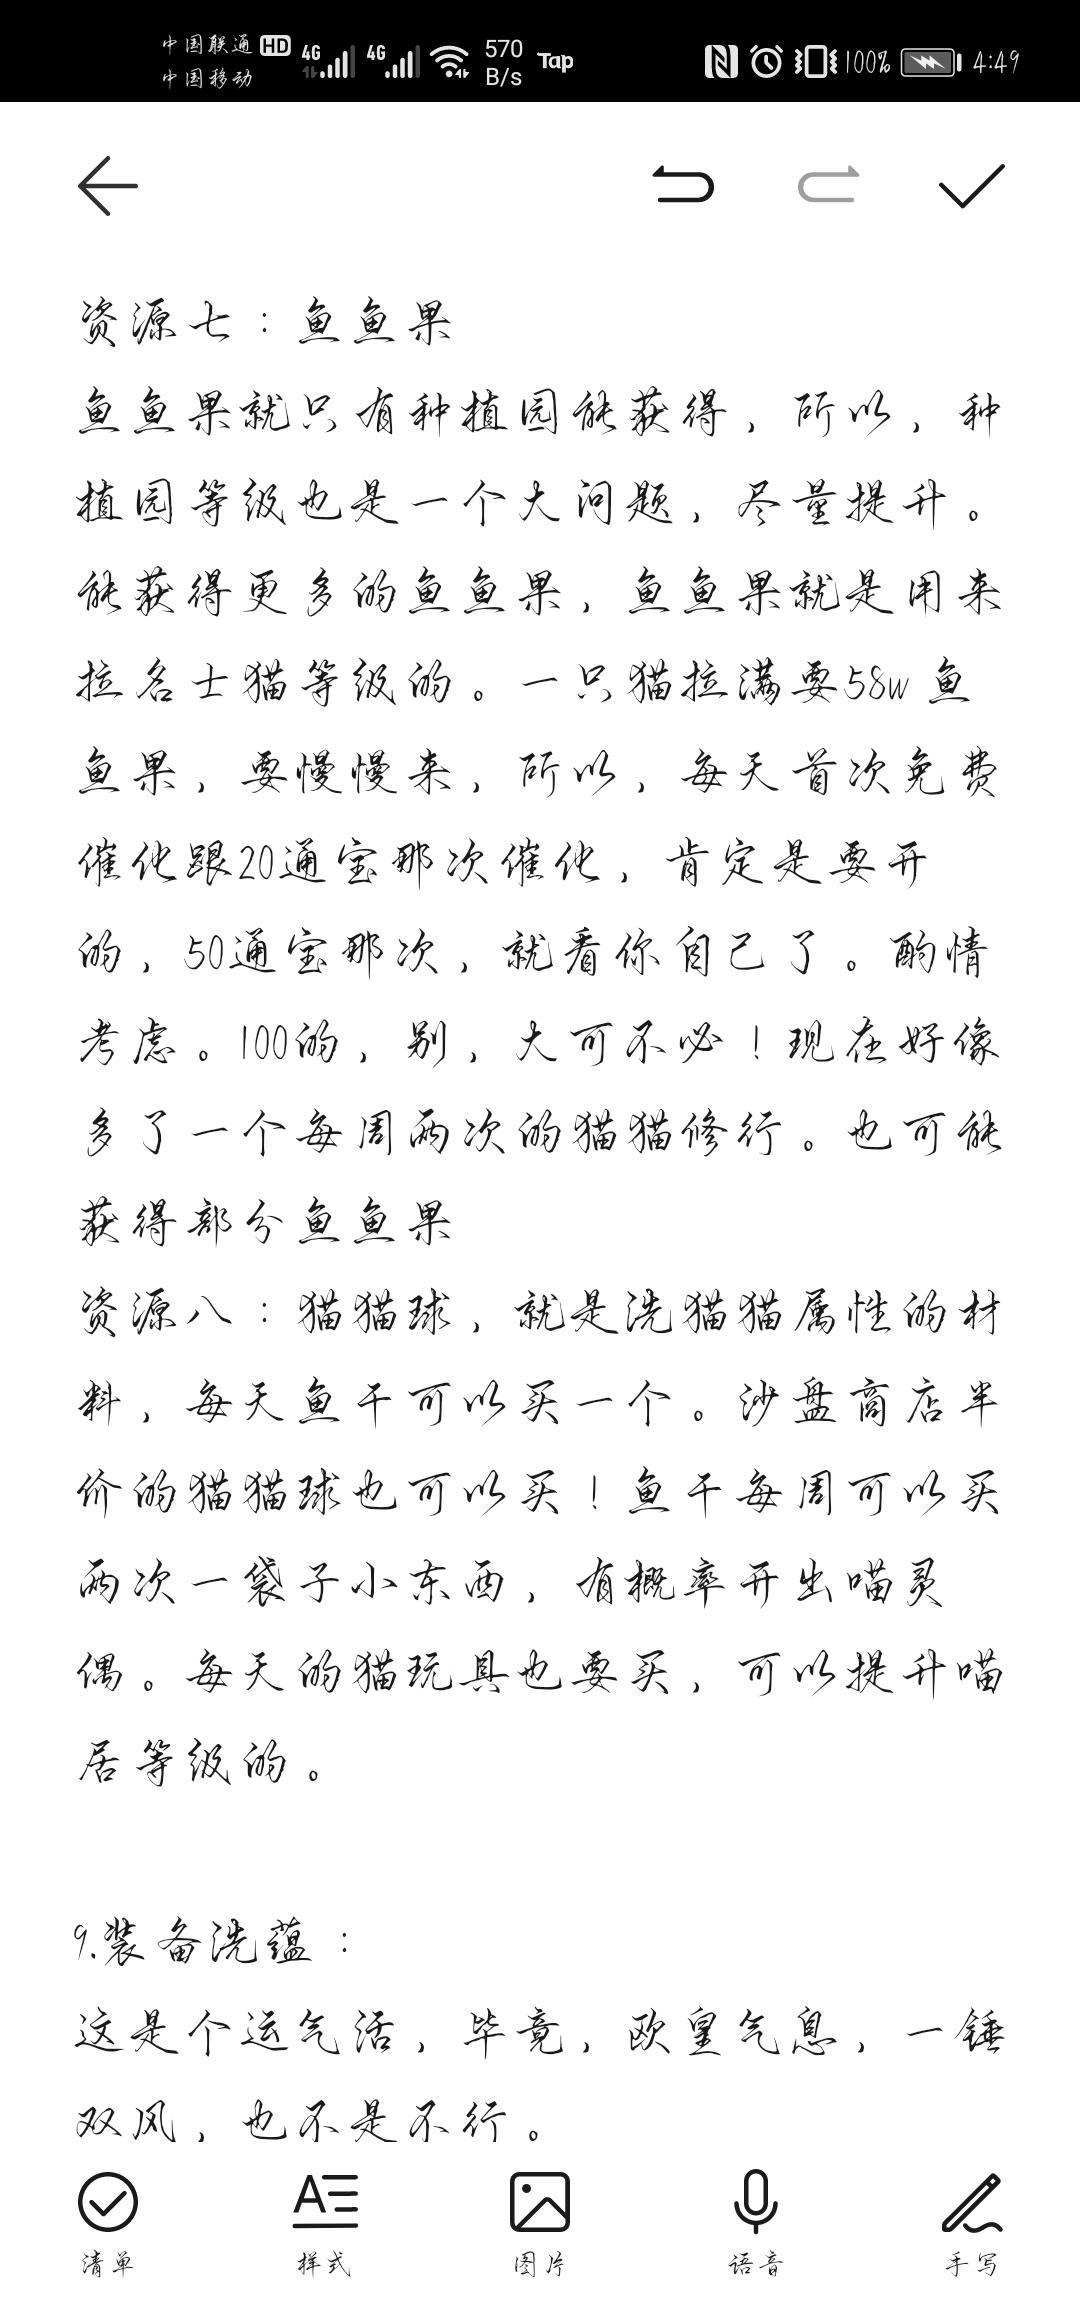 中国联通 HD 4G 4G 570 B/s Tap 100% 4:49
中国移动
资源七：鱼鱼果
鱼鱼果就只有种植园能获得，所以，种
植园等级也是一个大问题，尽量提升。
能获得更多的鱼鱼果，鱼鱼果就是用来
拉名士猫等级的。一只猫拉满要58w 鱼
鱼果，要慢慢来，所以，每天首次免费
催化跟20通宝那次催化，肯定是要开
的，50通宝那次，就看你自己了。酌情
考虑。100的，别，大可不必！现在好像
多了一个每周两次的猫猫修行。也可能
获得部分鱼鱼果
资源八：猫猫球，就是洗猫猫属性的材
料，每天鱼干可以买一个。沙盘商店半
价的猫猫球也可以买！鱼干每周可以买
两次一袋子小东西，有概率开出喵灵
偶。每天的猫玩具也要买，可以提升喵
居等级的。
9.装备洗蕴：
这是个运气活，毕竟，欧皇气息，一锤
双风，也不是不行。
清单 样式 图片 语音 手写